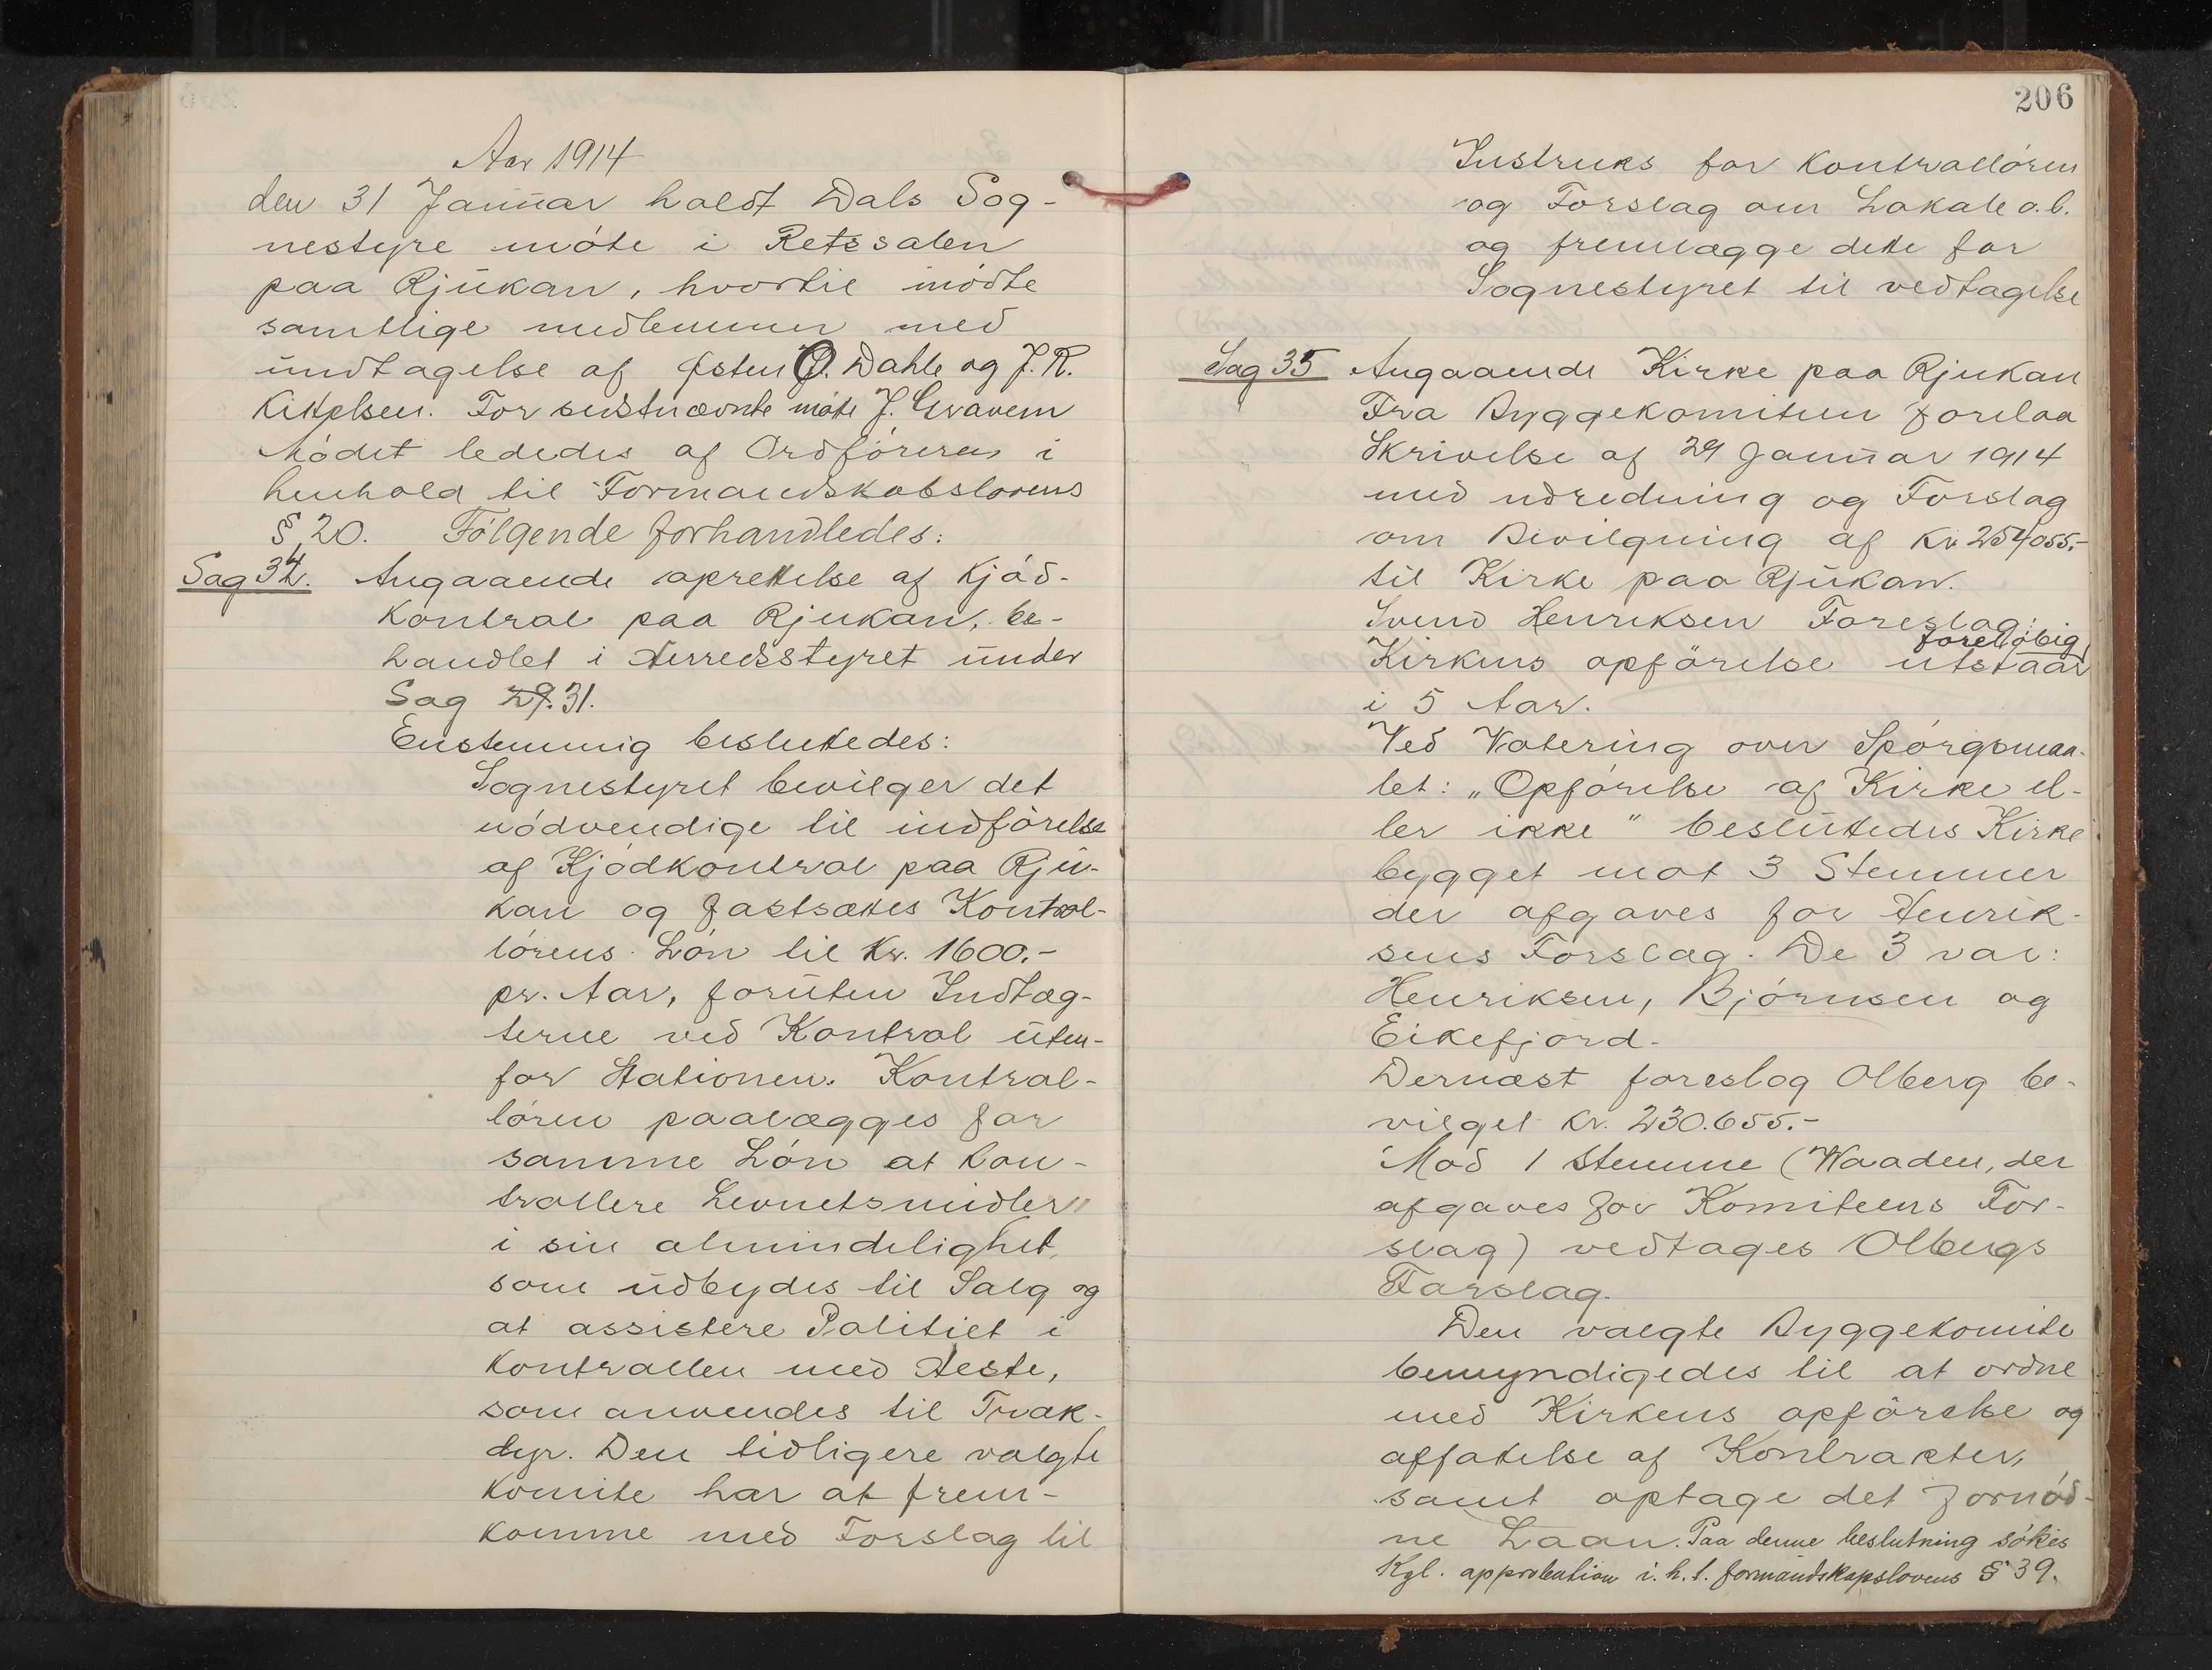 Aar 1914
den 31 Januar holdt Dals Sog-
nestyre möte i Retssalen
paa Rjukan, hvortil mödte
samtlige medlemmer med
undtagelse af Østen O. Dahle og J. R.
Kittelsen. For sidstnævnte möte J. Gravem
Mödet lededes af Ordföreren i
henhold til Formandskabslovens
§ 20. Fölgende forhandledes:
Sag 34. Angaaende oprettelse af Kjöd-
kontrol paa Rjukan, be-
handlet i Herredsstyret under
Sag 29. 31.
Enstemmig besluttedes:
Sognestyret bevilger det
nödvendige til indförelse
af Kjödkontrol paa Rju-
kan og fastsættes Kontrol-
lörens Lön til Kr. 1600.-
pr. Aar, foruten Indtæg-
terne ved Kontrol uten-
for Stationen. Kontrol-
lören paalægges for
samme Lön at kon-
trollere Levnetsmidler
i sin almindelighet,
som udbydes til Salg og
at assistere Politiet i
Kontrollen med Heste,
som anvendes til Træk-
dyr. Den tidligere valgte
Komite har at frem-
komme med Forslag til
206
Instruks for Kontrollören
og Forslag om Lokale o.l.
og fremlægge dette for
Sognestyret til vedtagelse
Sag 35 Angaaende Kirke paa Rjukan
Fra Byggekomiteen forelaa
Skrivelse af 29 Januar 1914
med udredning og Forslag
om Bevilgning af Kr. 254055.-
til Kirke paa Rjukan.
Svend Henriksen Foreslog:
forelöbig
Kirkens opförelse utstaar
i 5 Aar.
Ved Votering over Spörgsmaa-
let: "Opförelse af Kirke el-
ler ikke" besluttedes Kirke
bygget mot 3 Stemmer
der afgaves for Henrik-
sens Forslag. De 3 var:
Henriksen, Björnsen og
Eikefjord.
Dernæst foreslog Olberg be-
vilget Kr. 230.655.-
Mod 1 Stemme (Waaden, der
afgaves for Komiteens For-
slag) vedtages Olbergs
Forslag.
Den valgte Byggekomite
bemyndigedes til at ordne
med Kirkens opförelse og
affattelse af Kontrakter,
samt optage det fornöd-
ne Laan. Paa denne beslutning sökes
Kgl. approbation i. h. t. formandskapslovens § 39.